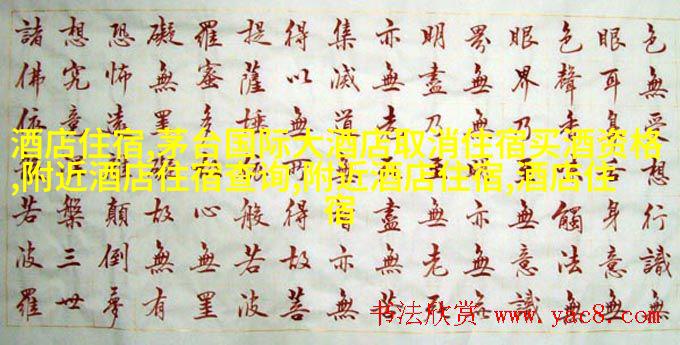 色無受想行識無
眼耳鼻身意無
色聲香觸法無
眼界乃無意識
界無無亦無
明盡乃無老死
亦無老盡無苦
集滅道亦無
得以無所得故菩
提薩埵般若波
羅蜜多心無罣
礙無罣故無有
恐怖遠顛倒夢
想究竟槃三世
諸佛依若波羅
酒店住宿,茅台国际大酒店取消住宿买酒资格
,附近酒店住宿查询,附近酒店住宿,酒店住
宿
书法欣赏 www.yac8.com